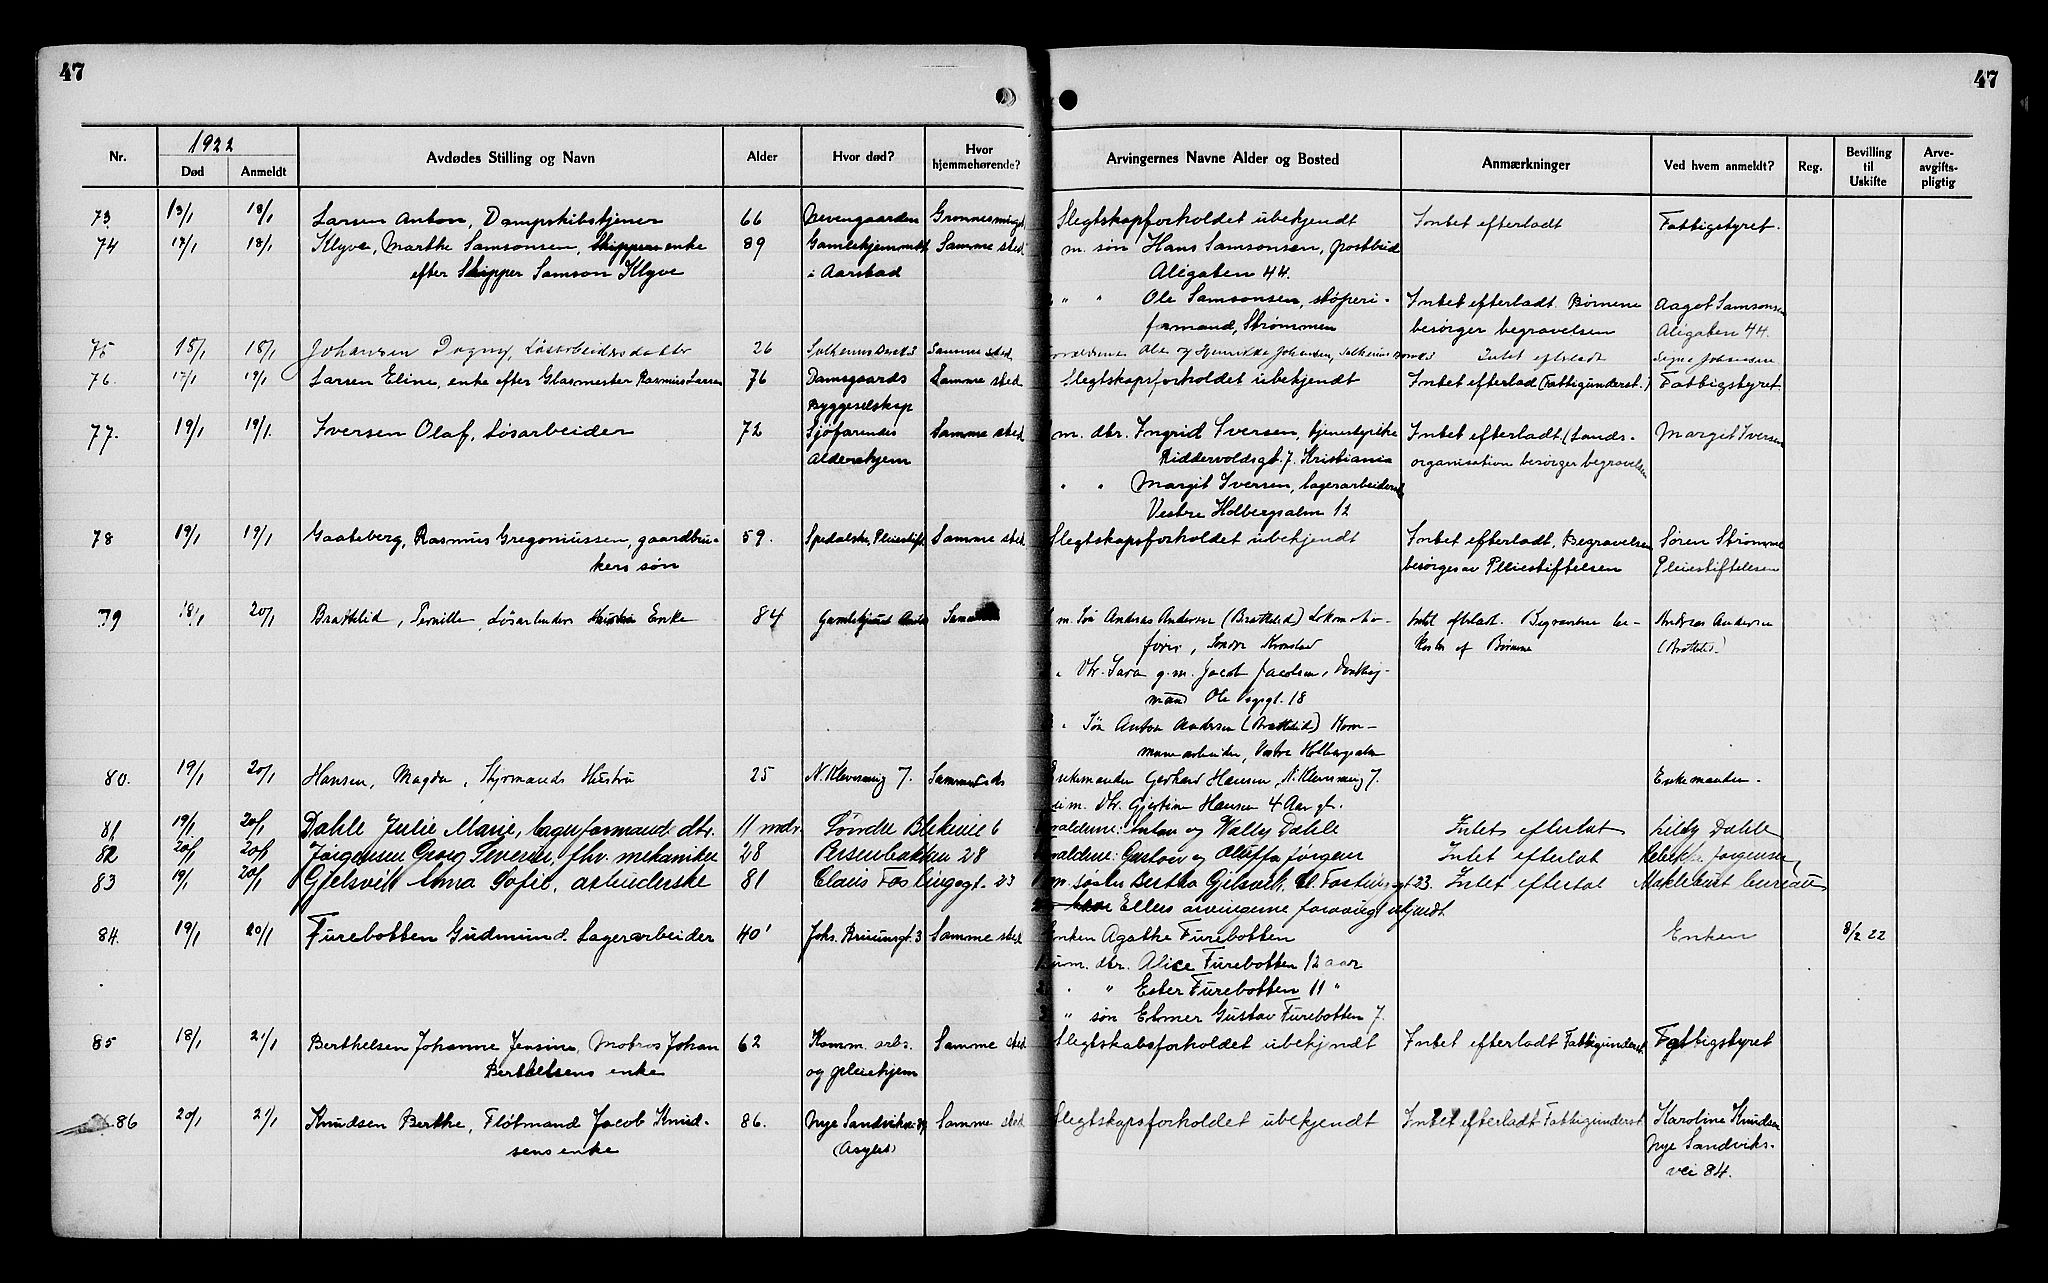 47
47
1922
Nr. Død Anmeldt Avdødes Stilling og Navn Alder Hvor død? Hvor hjemmehørende? Arvingernes Navne Alder og Bosted Anmærkninger Ved hvem anmeldt? Reg. Bevilling til Uskifte Arve-avgifts-pligtig
73 13/1 18/1 Larsen Anton, Dampskibstjener 66 Slegtskapsforholdet ubekjendt Intet efterladt Fattigstyret.
74 18/1 18/1 Klyve, Marthe Samsonsen, Skippers enke 89 Gamlehjemmet Samme sted m. søn Hans Samsonsen, postbud
efter Skipper Samson Klyve i Aarstad Aligaten 44.
" " Ole Samsonsen, støperi- Intet efterladt. Børnene Aagot Samsonsen
formand, Strømmen besørger begravelsen Aligaten 44.
75 15/1 18/1 Johansen Dagny, Løsarbeidersdatter 26 Samme sted Ole og Henrikke Johansen, Intet efterladt Signe Johansen
76. 17/1 19/1 Larsen Eline, enke efter Glasmester Rasmus Larsen 76 Damsgaards Samme sted Slegtskapsforholdet ubekjendt Intet efterlad (Fattigunderst.) Fattigstyret.
Byggeselskap
77. 19/1 19/1. Iversen Olaf, Løsarbeider 72 Sjøfarendes Samme sted m. dtr. Ingrid Iversen, tjenestepike Intet efterladt (Lands- Margit Iversen
Aldershjem Riddervoldsgt. 7. Kristiania organisation besørger begravelsen
" " Margit Iversen, lagerarbeiderske
Vestre Holbergsalm 12
78 19/1 19/1 Gaateberg, Rasmus Gregoriussen, gaardbru- 59. Spedalske, Pleiestift. Samme sted Slegtskapsforholdet ubekjendt Intet efterladt, Begravelsen Søren Strømme
kers søn besørges av Pleiestiftelsen Pleiestiftelsen
79 18/1 20/1 Brattelid, Pernille, Løsarbeiders Enke 84 m. Søn Andreas Andersen (Brattelid) Lokomotiv- Intet efterladt. Begravelsen be- Andreas Andersen
fører, Søndre Kronstad kostes af Børnene (Brattelid)
" Dtr. Sara g.m. Jacob Jacobsen,
mand Ole Vigsgt. 18
" Søn Anton Andersen (Brattelid) Kom-
munearbeider, Vestre Holbergsalm
80. 19/1 20/1 Hansen, Magda, Styrmands Hustru 25 N. Klevesmug 7. Sammesteds Enkemanden Gerhard Hansen, N. Kleivesmug 7. Enkemanden.
um. Dtr. Gjertine Hansen 4 Aar gl.
81 19/1 20/1 Dahle Julie Marie, lagerformands dtr. 11 mdr. Søndre Blekevei 6 Forældrene: Anton og Wally Dahle Intet efterlat Lilly Dahle
82 20/1 20/1 Jørgensen Georg Severin, fhv. mekaniker 28 Persenbakken 28 Forældrene: Gustav og Oluffa Jørgensen Intet efterlat Rebekka Jørgensen
83 19/1 20/1 Gjelsvik Anna Sofie, arbeiderske 81 Claus Fastingsgt. 23 m. søster Bertha Gjelsvik, Cl. Fastingsgt 23. Intet efterlat
Ellers arvingerne forøvrigt ukjendt
84. 19/1 20/1 Furebotten Gudmund. Lagerarbeider 40 Johs. Bruunsgt. 3 Samme sted Enken Agathe Furebotten Enken 8/2 22
1 um. dtr. Alice Furebotten 12 aar
2 " " Ester Furebotten 11 "
3 " søn Elmer Gustav Furebotten 7.
85 18/1 21/1 Berthelsen Johanne Jensine, Matros Johan 62 Komm. arb. Samme sted Slegtskabsforholdet ubekjendt Intet efterladt Fattigunderst. Fattigstyret
Berthelsens enke og pleiehjem
86 20/1 21/1 Knudsen Berthe, Fløtmand Jacob Knud- 86. Nye Sandviksv. Samme sted Slegtskapsforholdet ubekjendt Intet efterladt Fattigunderst. Karoline Knudsen
sens enke (Asylet) Nye Sandviks-
vei 84.